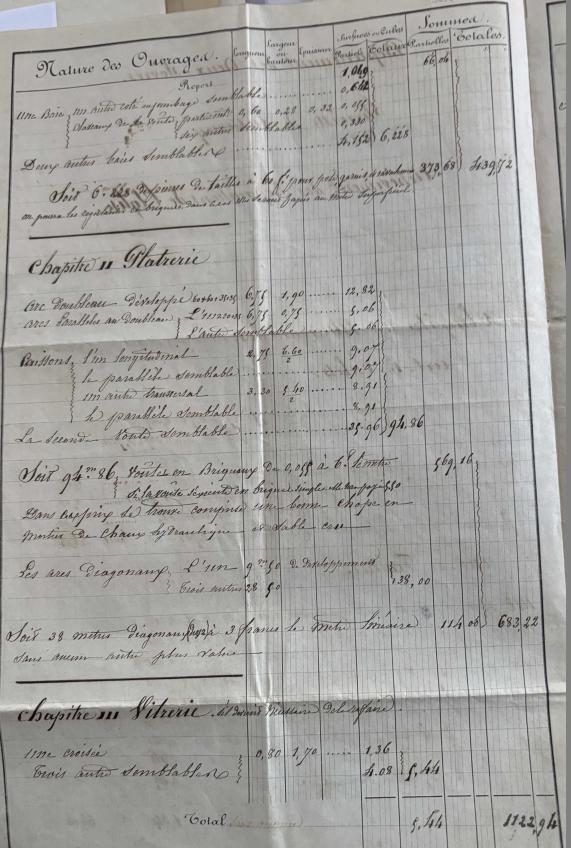 Nature des Ouvrages. Longueur Largeur ou hauteur Epaisseur Surfaces ou Cubes Partiels Totaux Sommes Partielles Totales.
Report 1,069 66,04
Une Baie un autre coté enjambage semblable 0,642
0,60 0,28 0,33 0,055
six autres semblables 0,330
Deux autres baies semblables 4,152 6,228
Soit 6.228 de pierres de tailles à 60 f. pour 373,68 439,72
Chapitre II Platrerie
Arc Doubleau développé 6,75 1,90 12,82
Arcs Paralleles au Doubleau L'un 6,75 0,75 5,06
L'autre semblable 5,06
Caissons l'un longitudinal 2,75 6.60/2 9,07
le parallèle semblable 9,07
un autre transversal 3,30 5.40/2 8,91
le parallèle semblable 8,91
La seconde voute semblable 35,96 94,86
Soit 94m 86 Voutes en Briqueaux de 0,055 à 6f. le mètre 569,16
Si la voute s'exécute en brique simple
Dans ce prix se trouve comprise une bonne chape en
mortier de chaux hydraulique et sable cru
Les arcs diagonaux L'un 9m 50 de développement
Trois autres 28 50 38,00
Soit 38 mètres diagonaux à 3 francs le mètre linéaire 114 06 683,22
sans aucun autre plus value
Chapitre III Vitrerie.
Une croisée 0,80 1,70 1,36
Trois autre semblables 4.08 5,44
Total 5,44 1122,94